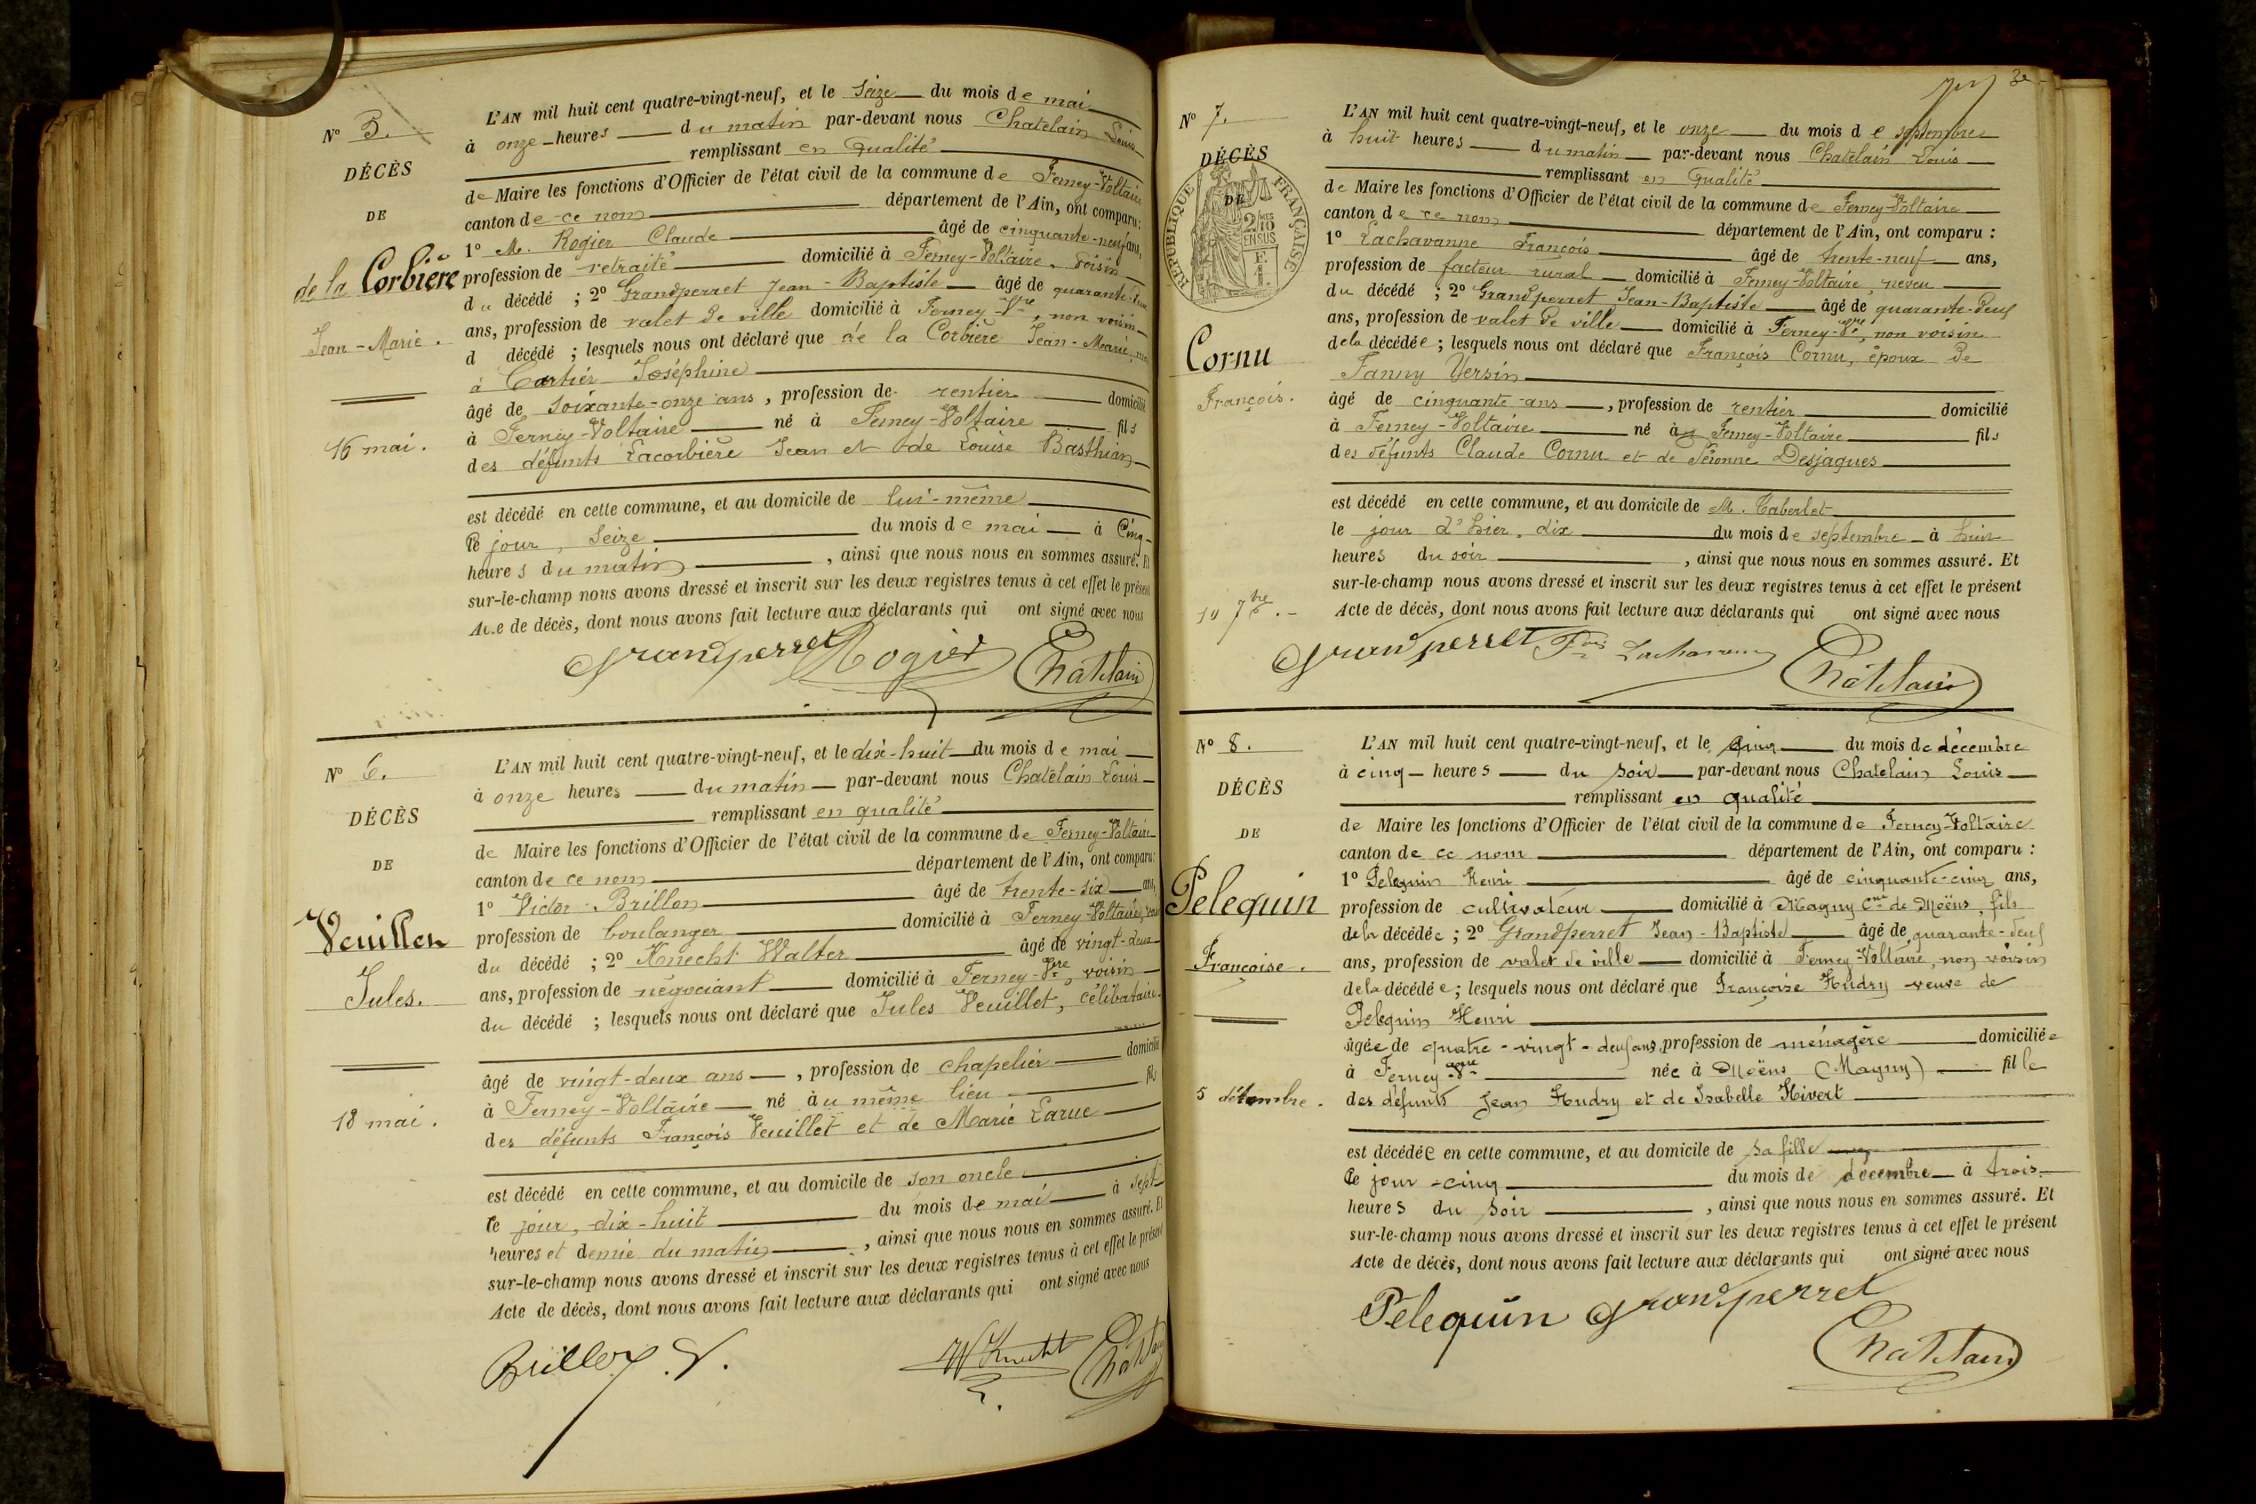 N° 5.
DÉCÈS
DE
de la Corbière
Jean-Marie.
16 mai.
L'AN mil huit cent quatre-vingt-neuf, et le seize du mois de mai
à onze heures du matin par-devant nous Chatelain Louis
remplissant en qualité
de Maire les fonctions d'Officier de l'état civil de la commune de Ferney-Voltaire
canton de ce nom département de l'Ain, ont comparu:
1° M. Rogier Claude âgé de cinquante-neuf ans,
profession de retraité domicilié à Ferney-Voltaire, voisin
du décédé ; 2° Grandperret Jean-Baptiste âgé de quarante-deux
ans, profession de valet de ville domicilié à Ferney-Vre, non voisin
d décédé ; lesquels nous ont déclaré que de la Corbière Jean-Marie
à Cartier Joséphine
âgé de soixante-onze ans, profession de rentier domicilié
à Ferney-Voltaire né à Ferney-Voltaire fils
des défunts Lacorbière Jean et de Louise Basthian
est décédé en cette commune, et au domicile de lui-même
ce jour, seize du mois de mai à cinq
heures du matin, ainsi que nous nous en sommes assuré. Et
sur-le-champ nous avons dressé et inscrit sur les deux registres tenus à cet effet le présent
Acte de décès, dont nous avons fait lecture aux déclarants qui ont signé avec nous
Grandperret Rogier Châtelain
N° 6.
DÉCÈS
DE
Veuillet
Jules.
18 mai.
L'AN mil huit cent quatre-vingt-neuf, et le dix-huit du mois de mai
à onze heures du matin par-devant nous Chatelain Louis
remplissant en qualité
de Maire les fonctions d'Officier de l'état civil de la commune de Ferney-Voltaire
canton de ce nom département de l'Ain, ont comparu:
1° Victor Brillon âgé de trente-six ans,
profession de boulanger domicilié à Ferney-Voltaire,
du décédé ; 2° Knecht Walter âgé de vingt-deux
ans, profession de négociant domicilié à Ferney-Vre, voisin
du décédé ; lesquels nous ont déclaré que Jules Veuillet, célibataire
âgé de vingt-deux ans, profession de chapelier domicilié
à Ferney-Voltaire né au même lieu fils
des défunts François Veuillet et de Marie Larue
est décédé en cette commune, et au domicile de son oncle
ce jour, dix-huit du mois de mai à sept
heures et demie du matin, ainsi que nous nous en sommes assuré. Et
sur-le-champ nous avons dressé et inscrit sur les deux registres tenus à cet effet le présent
Acte de décès, dont nous avons fait lecture aux déclarants qui ont signé avec nous
Brillon V. W Knecht Châtelain
N° 7.
DÉCÈS
DE
RÉPUBLIQUE FRANÇAISE
2/10 EN SUS
Cornu
François.
10 7bre.
L'AN mil huit cent quatre-vingt-neuf, et le onze du mois de septembre
à huit heures du matin par-devant nous Chatelain Louis
remplissant en qualité
de Maire les fonctions d'Officier de l'état civil de la commune de Ferney-Voltaire
canton de ce nom département de l'Ain, ont comparu :
1° Lachavanne François âgé de trente-neuf ans,
profession de facteur rural domicilié à Ferney-Voltaire, neveu
du décédé ; 2° Grandperret Jean-Baptiste âgé de quarante-deux
ans, profession de valet de ville domicilié à Ferney-Vre, non voisin
de la décédée ; lesquels nous ont déclaré que François Cornu, époux de
Fanny Versin
âgé de cinquante ans, profession de rentier domicilié
à Ferney-Voltaire né à Ferney-Voltaire fils
des défunts Claude Cornu et de Péronne Desjaques
est décédé en cette commune, et au domicile de M. Taberlet
le jour d'hier, dix du mois de septembre à huit
heures du soir, ainsi que nous nous en sommes assuré. Et
sur-le-champ nous avons dressé et inscrit sur les deux registres tenus à cet effet le présent
Acte de décès, dont nous avons fait lecture aux déclarants qui ont signé avec nous
Grandperret Fois Lachavanne Châtelain
N° 8.
DÉCÈS
DE
Pelequin
Françoise.
5 décembre.
L'AN mil huit cent quatre-vingt-neuf, et le cinq du mois de décembre
à cinq heures du soir par-devant nous Chatelain Louis
remplissant en qualité
de Maire les fonctions d'Officier de l'état civil de la commune de Ferney-Voltaire
canton de ce nom département de l'Ain, ont comparu :
1° Pelequin Henri âgé de cinquante-cinq ans,
profession de cultivateur domicilié à Magny Cne de Moëns, fils
de la décédée ; 2° Grandperret Jean-Baptiste âgé de quarante-deux
ans, profession de valet de ville domicilié à Ferney-Voltaire, non voisin
de la décédée ; lesquels nous ont déclaré que Françoise Hudry veuve de
Pelequin Henri
âgée de quatre-vingt-deux ans, profession de ménagère domiciliée
à Ferney Vre née à Moëns (Magny) fille
des défunts Jean Hudry et de Isabelle Hivert
est décédée en cette commune, et au domicile de sa fille
ce jour cinq du mois de décembre à trois
heures du soir, ainsi que nous nous en sommes assuré. Et
sur-le-champ nous avons dressé et inscrit sur les deux registres tenus à cet effet le présent
Acte de décès, dont nous avons fait lecture aux déclarants qui ont signé avec nous
Pelequin Grandperret
Châtelain